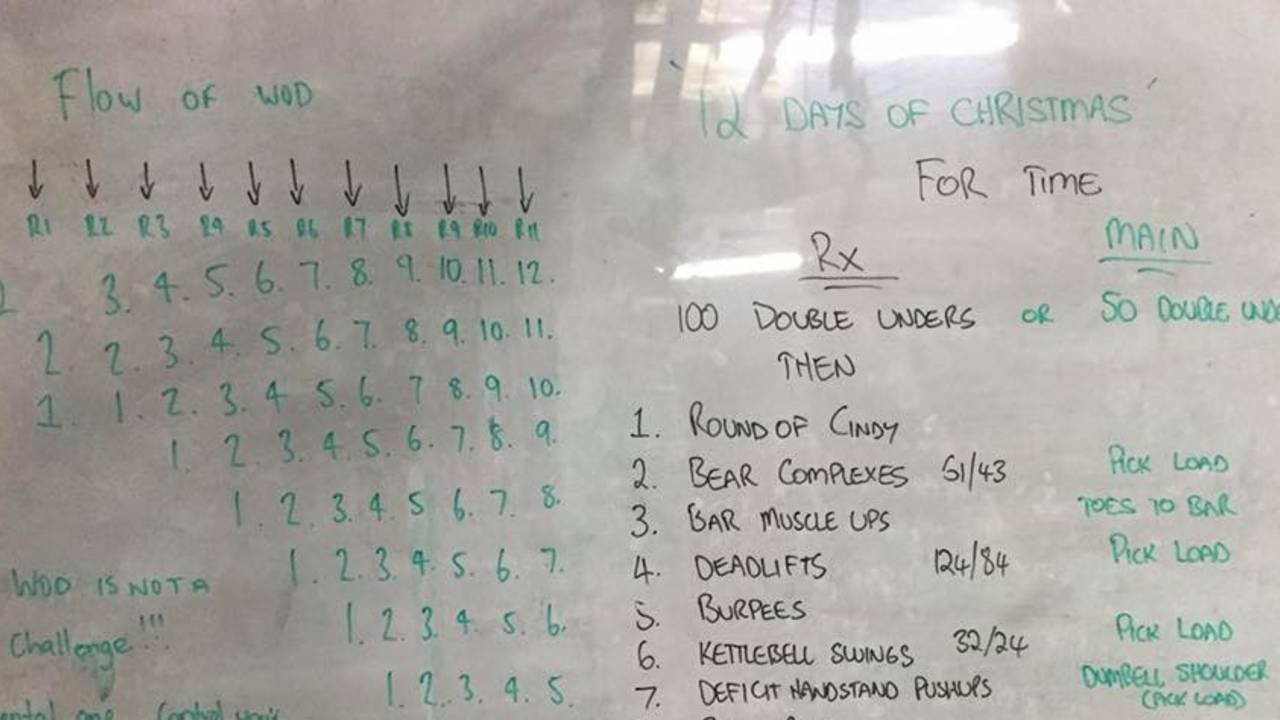 Flow OF WOD
R1 R2 R3 R4 R5 R6 R7 R8 R9 R10 R11
3. 4. 5. 6. 7. 8. 9. 10. 11. 12.
2. 2. 3. 4. 5. 6. 7. 8. 9. 10. 11.
1. 1. 2. 3. 4 5. 6. 7 8. 9. 10.
1. 2. 3. 4. 5. 6. 7. 8. 9.
1. 2. 3. 4. 5 6. 7. 8.
1. 2. 3. 4. 5. 6. 7.
1. 2. 3. 4. 5. 6.
1. 2. 3. 4. 5.
WOD IS NOT A
Challenge!!!
'12 DAYS OF CHRISTMAS'
FOR TIME
Rx MAIN
100 DOUBLE UNDERS OR 50 DOUBLE
THEN
1. ROUND OF CINDY
2. BEAR COMPLEXES 61/43 PICK LOAD
3. BAR MUSCLE UPS TOES TO BAR
4. DEADLIFTS 124/84 PICK LOAD
5. BURPEES
6. KETTLEBELL SWINGS 32/24 PICK LOAD
7. DEFICIT HANDSTAND PUSHUPS DUMBELL SHOULDER
(PICK LOAD)